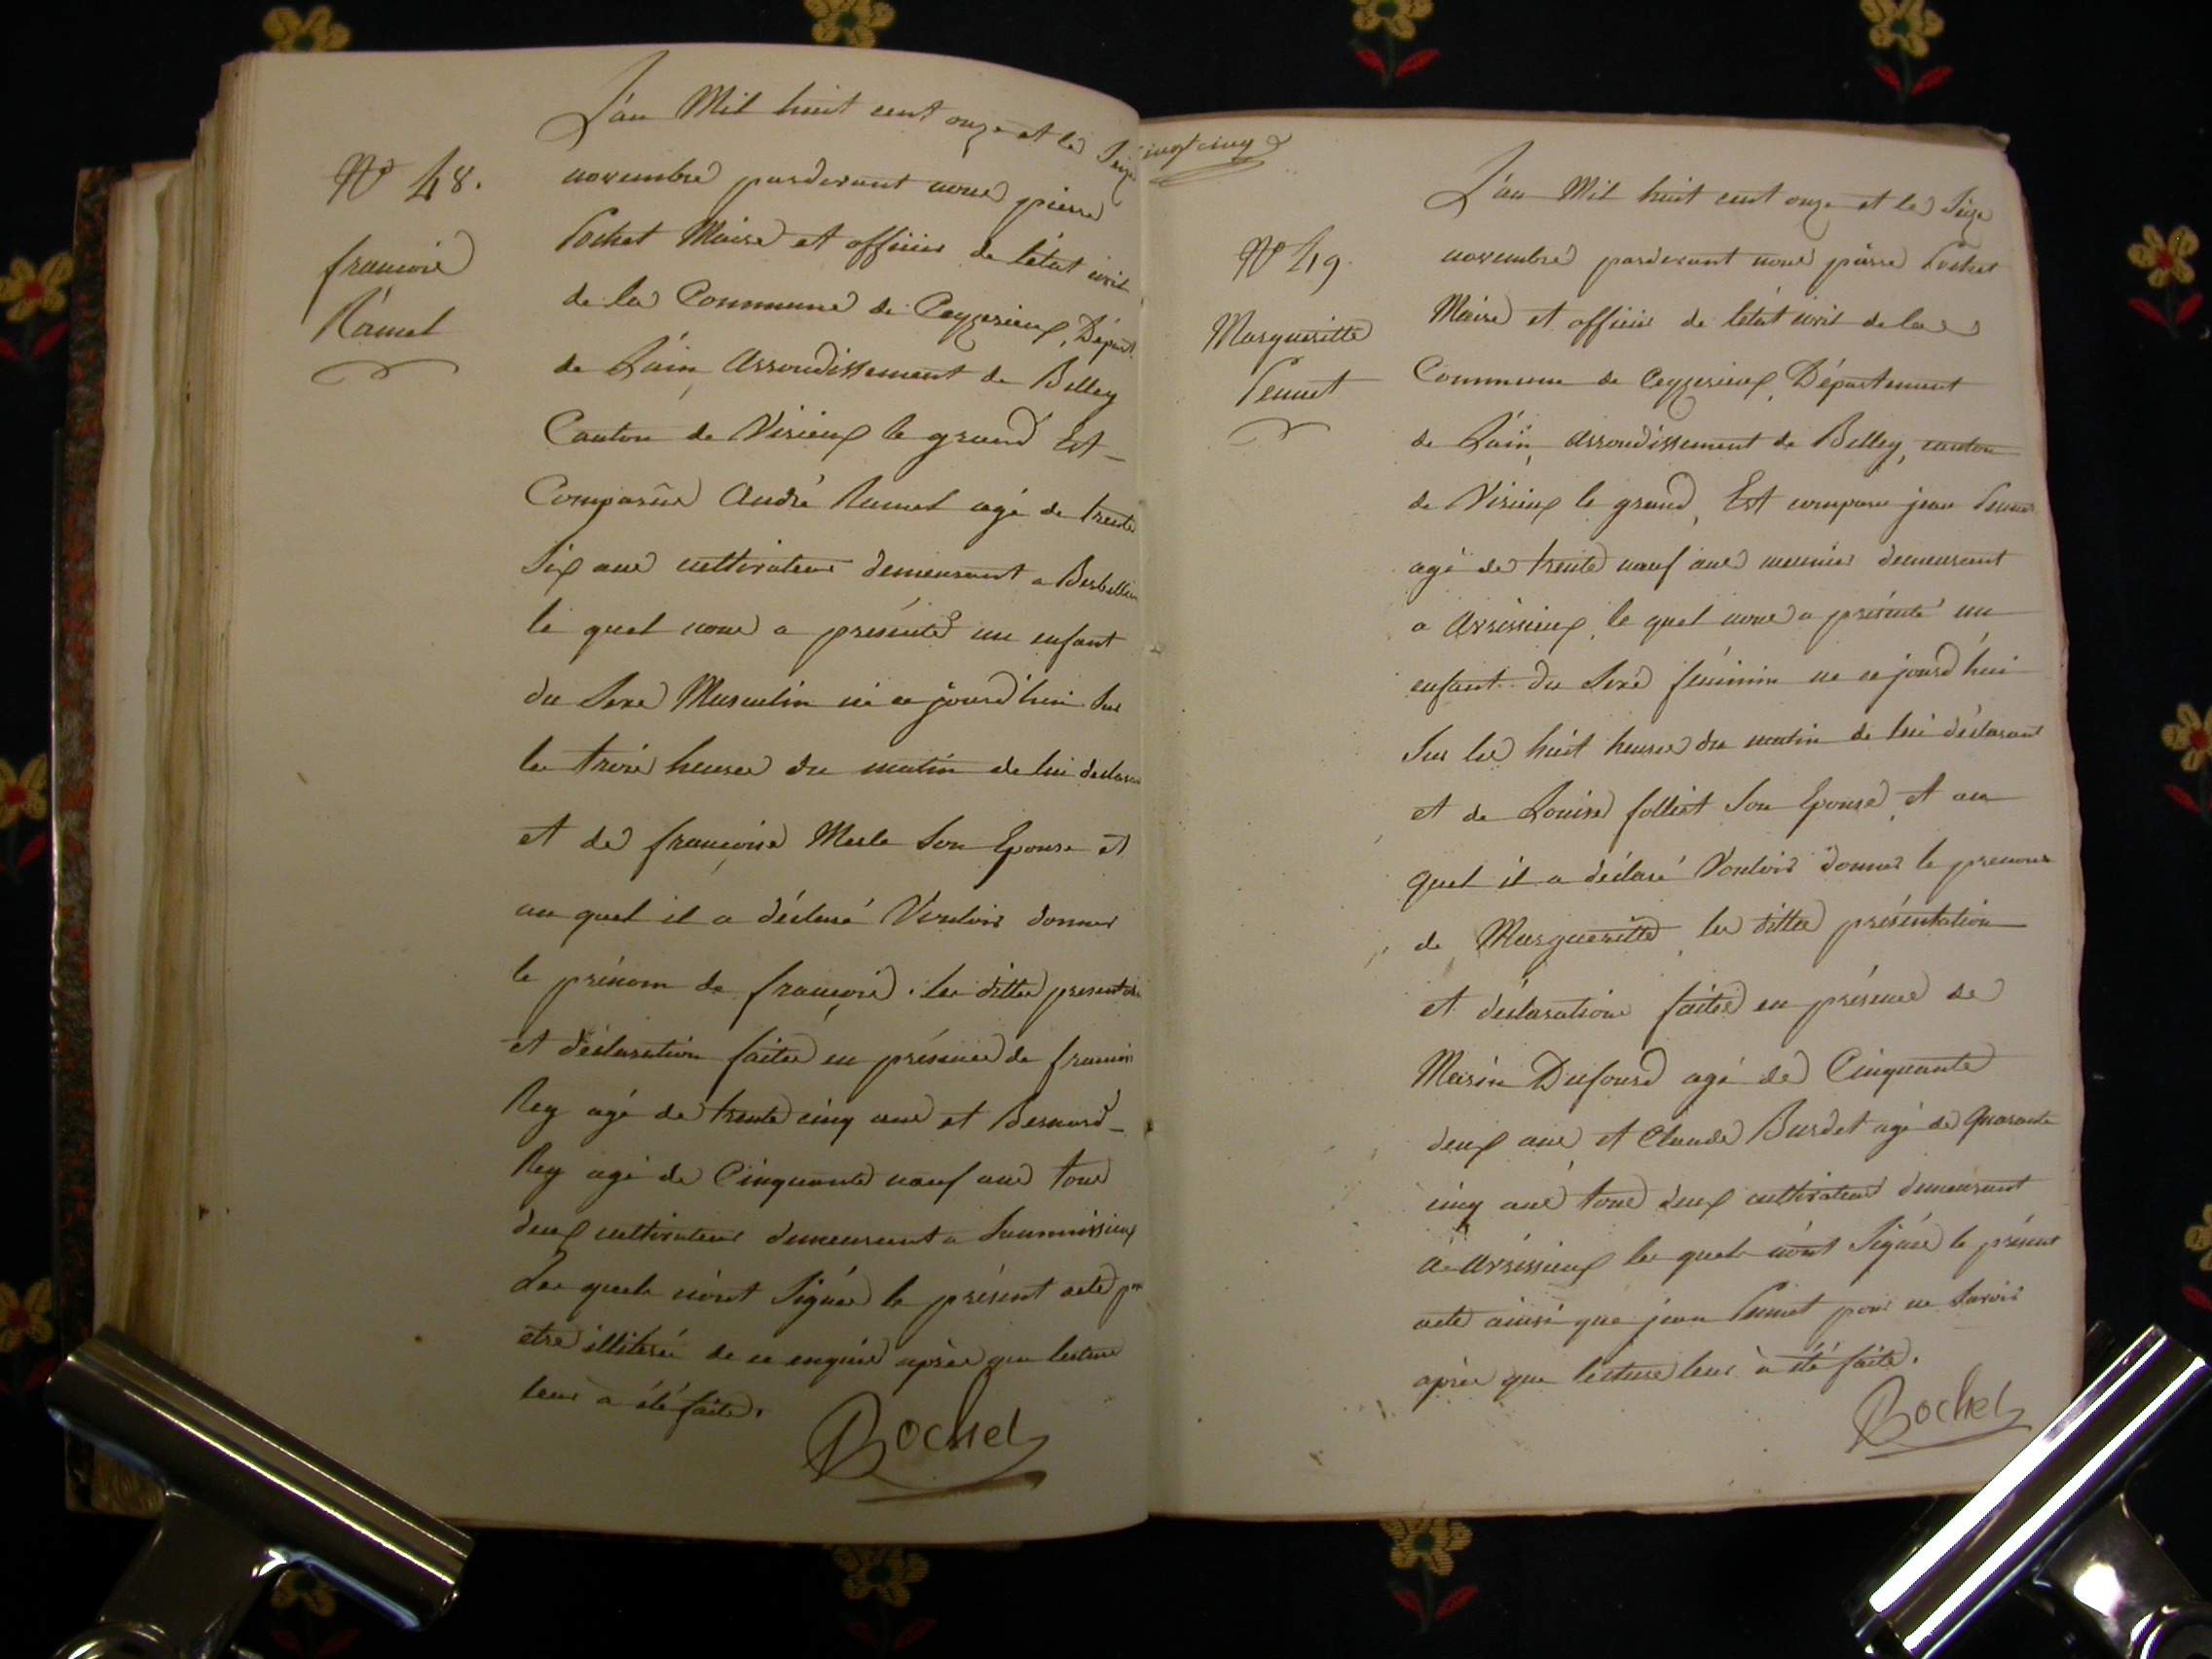 N° 48.
françois
Ramel
L'an Mil huit cent onze et le Seize
novembre pardevant nous pierre
Pochet Maire et officier de l'état civil
de la Commune de Ceyzerieux, Départ.
de L'ain, Arrondissement de Belley
Canton de Virieux le grand Est
Comparûe André Ramel agé de trente
Six ans cultivateur demeurant a
le quel nous a présenté un enfant
du Sexe Masculin né ce jourd'hui Sur
les trois heures du matin de lui déclarant
et de françoise Merle Son Epouse et
au quel il a déclaré Vouloir donner
le prénom de françois. les dittes
et déclaration faites en présence de françois
Rey agé de trente cinq ans et Bernard
Rey agé de Cinquante neuf ans tous
deux cultivateurs demeurant a
Les quels n'ont Signés le présent acte pr
etre illiterés de ce enquis après que lecture
leur a été faite.
Rochet
vingt cinq
N° 49.
Margueritte
Pennet
L'an Mil huit cent onze et le Seize
novembre pardevant nous pierre Pochet
Maire et officier de l'état civil de la
Commune de Ceyzerieux, Département
de L'ain, arrondissement de Belley, canton
de Virieux le grand, Est comparu jean Pennet
agé de trente neuf ans meunier demeurant
a Avrissieux, le quel nous a présenté un
enfant du Sexe féminin né ce jourd'hui
Sur les huit heures du matin de lui déclarant
et de Louise folliet Son Epouse, et au
quel il a déclaré Vouloir donner le prenom
de Margueritte, les dittes présentation
et déclarations faites en présence de
Marin Dufourd agé de Cinquante
deux ans et Claude Burdet agé de Quarante
cinq ans tous deux cultivateurs demeurant
a Avrissieux les quels n'ont Signés le présent
acte ainsi que jean Pennet pour ne Savoir
après que lecture leur à été faite.
Rochet